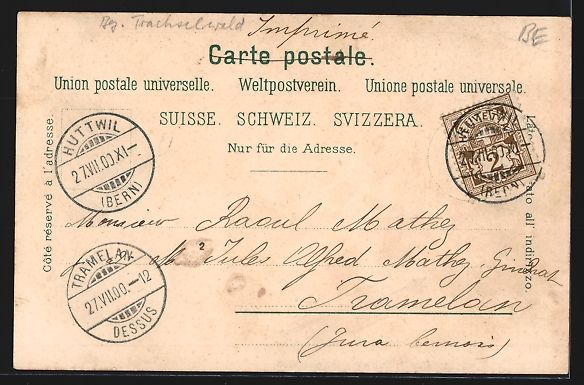 Bez. Trachselwald
BE
Imprimé
Carte postale.
Union postale universelle. Weltpostverein. Unione postale universale.
SUISSE. SCHWEIZ. SVIZZERA.
Nur für die Adresse.
Côté réservé à l'adresse.
HUTTWIL
27.VII.00.XI–
(BERN)
2
(BERN)
Monsieur Raoul Mathez
Jules Alfred Mathez
Tramelan
(Jura bernois)
TRAMELAN
27.VII.00.–12
DESSUS